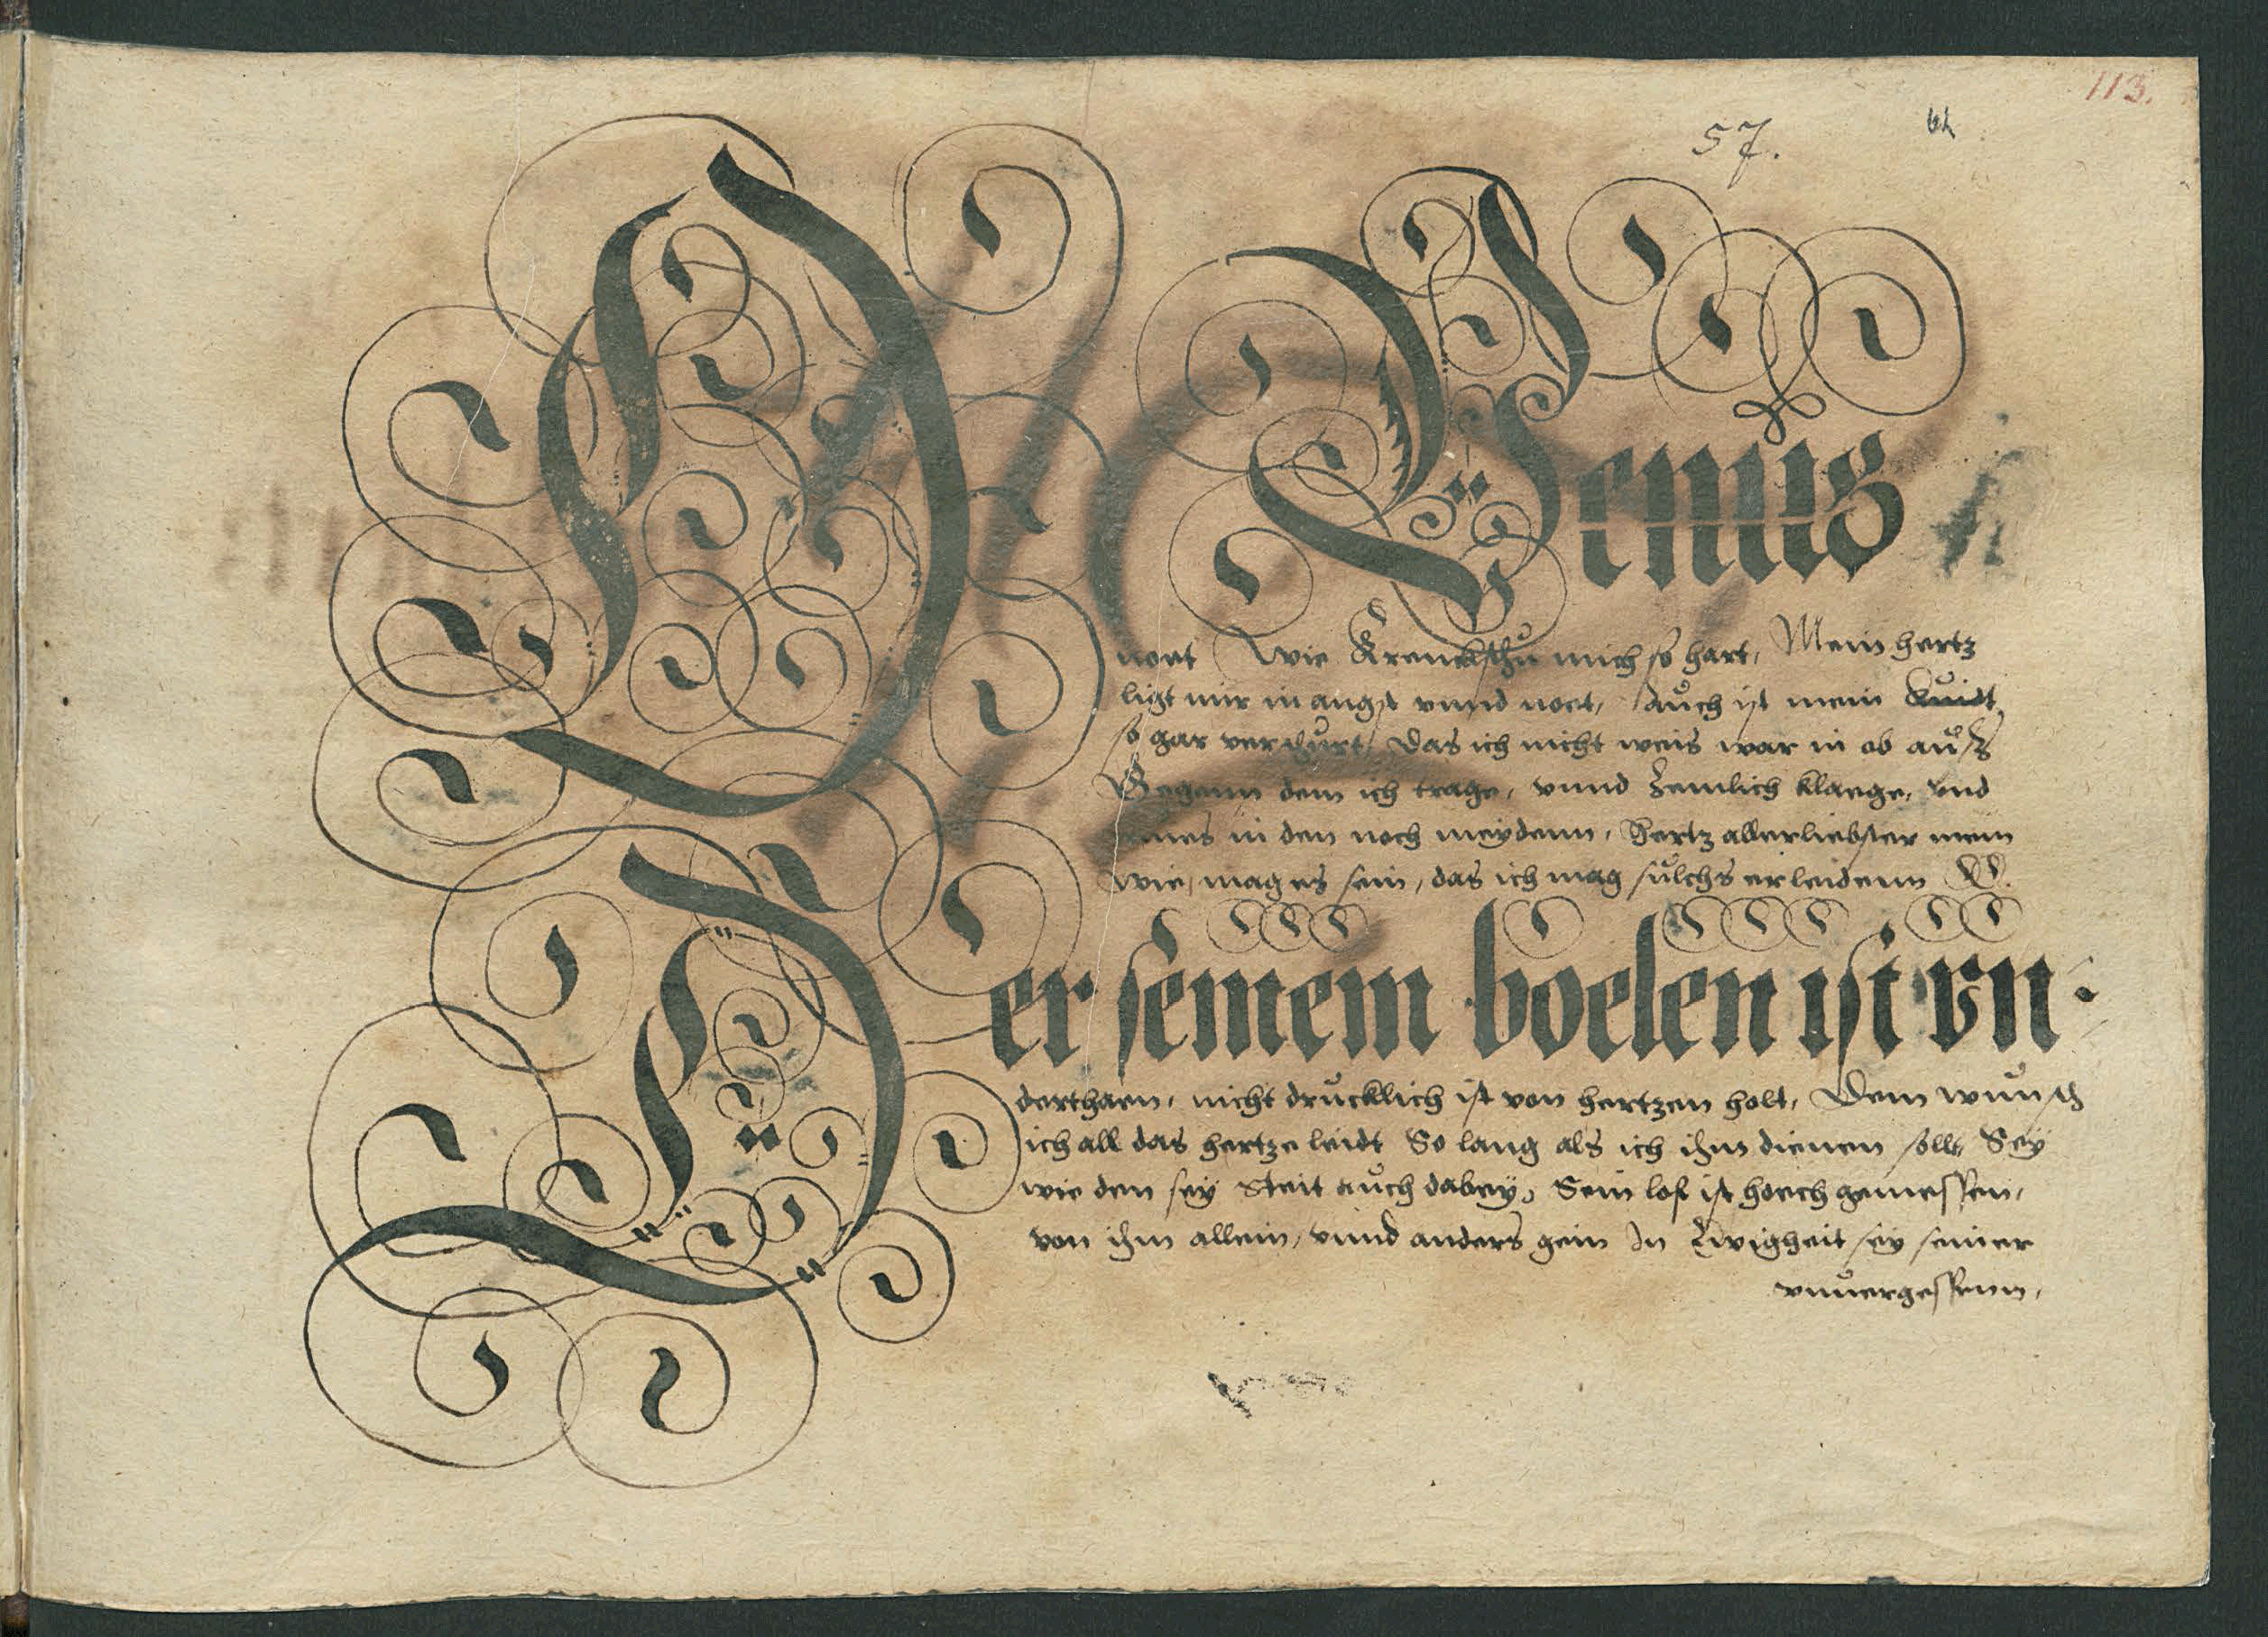 113.
57.
O Venus
noet wie Krencksthu mich so hart, Mein hertz
ligt mir in angst vnnd noet, auch ist mein
so gar verdurt, das ich nicht weis war in ob auss
dem ich trage, vnnd Zemlich klaege, vnd
in den noch meydenn, Hertz allerliebster mein
wie, mag es sein, das ich mag sulchs erleidenn
Der seinem boelen ist vn:
derthaen, nicht drucklich ist von hertzen holt, Dem wunsch
ich all das hertze leidt So lang als ich ihm dienen sollt, Sey
wie dem sey Steit auch dabey, Sein lof ist hoech gemessen,
von ihm allein, vnnd anders gein In Ewigheit sey seiner
vnuergessenn,